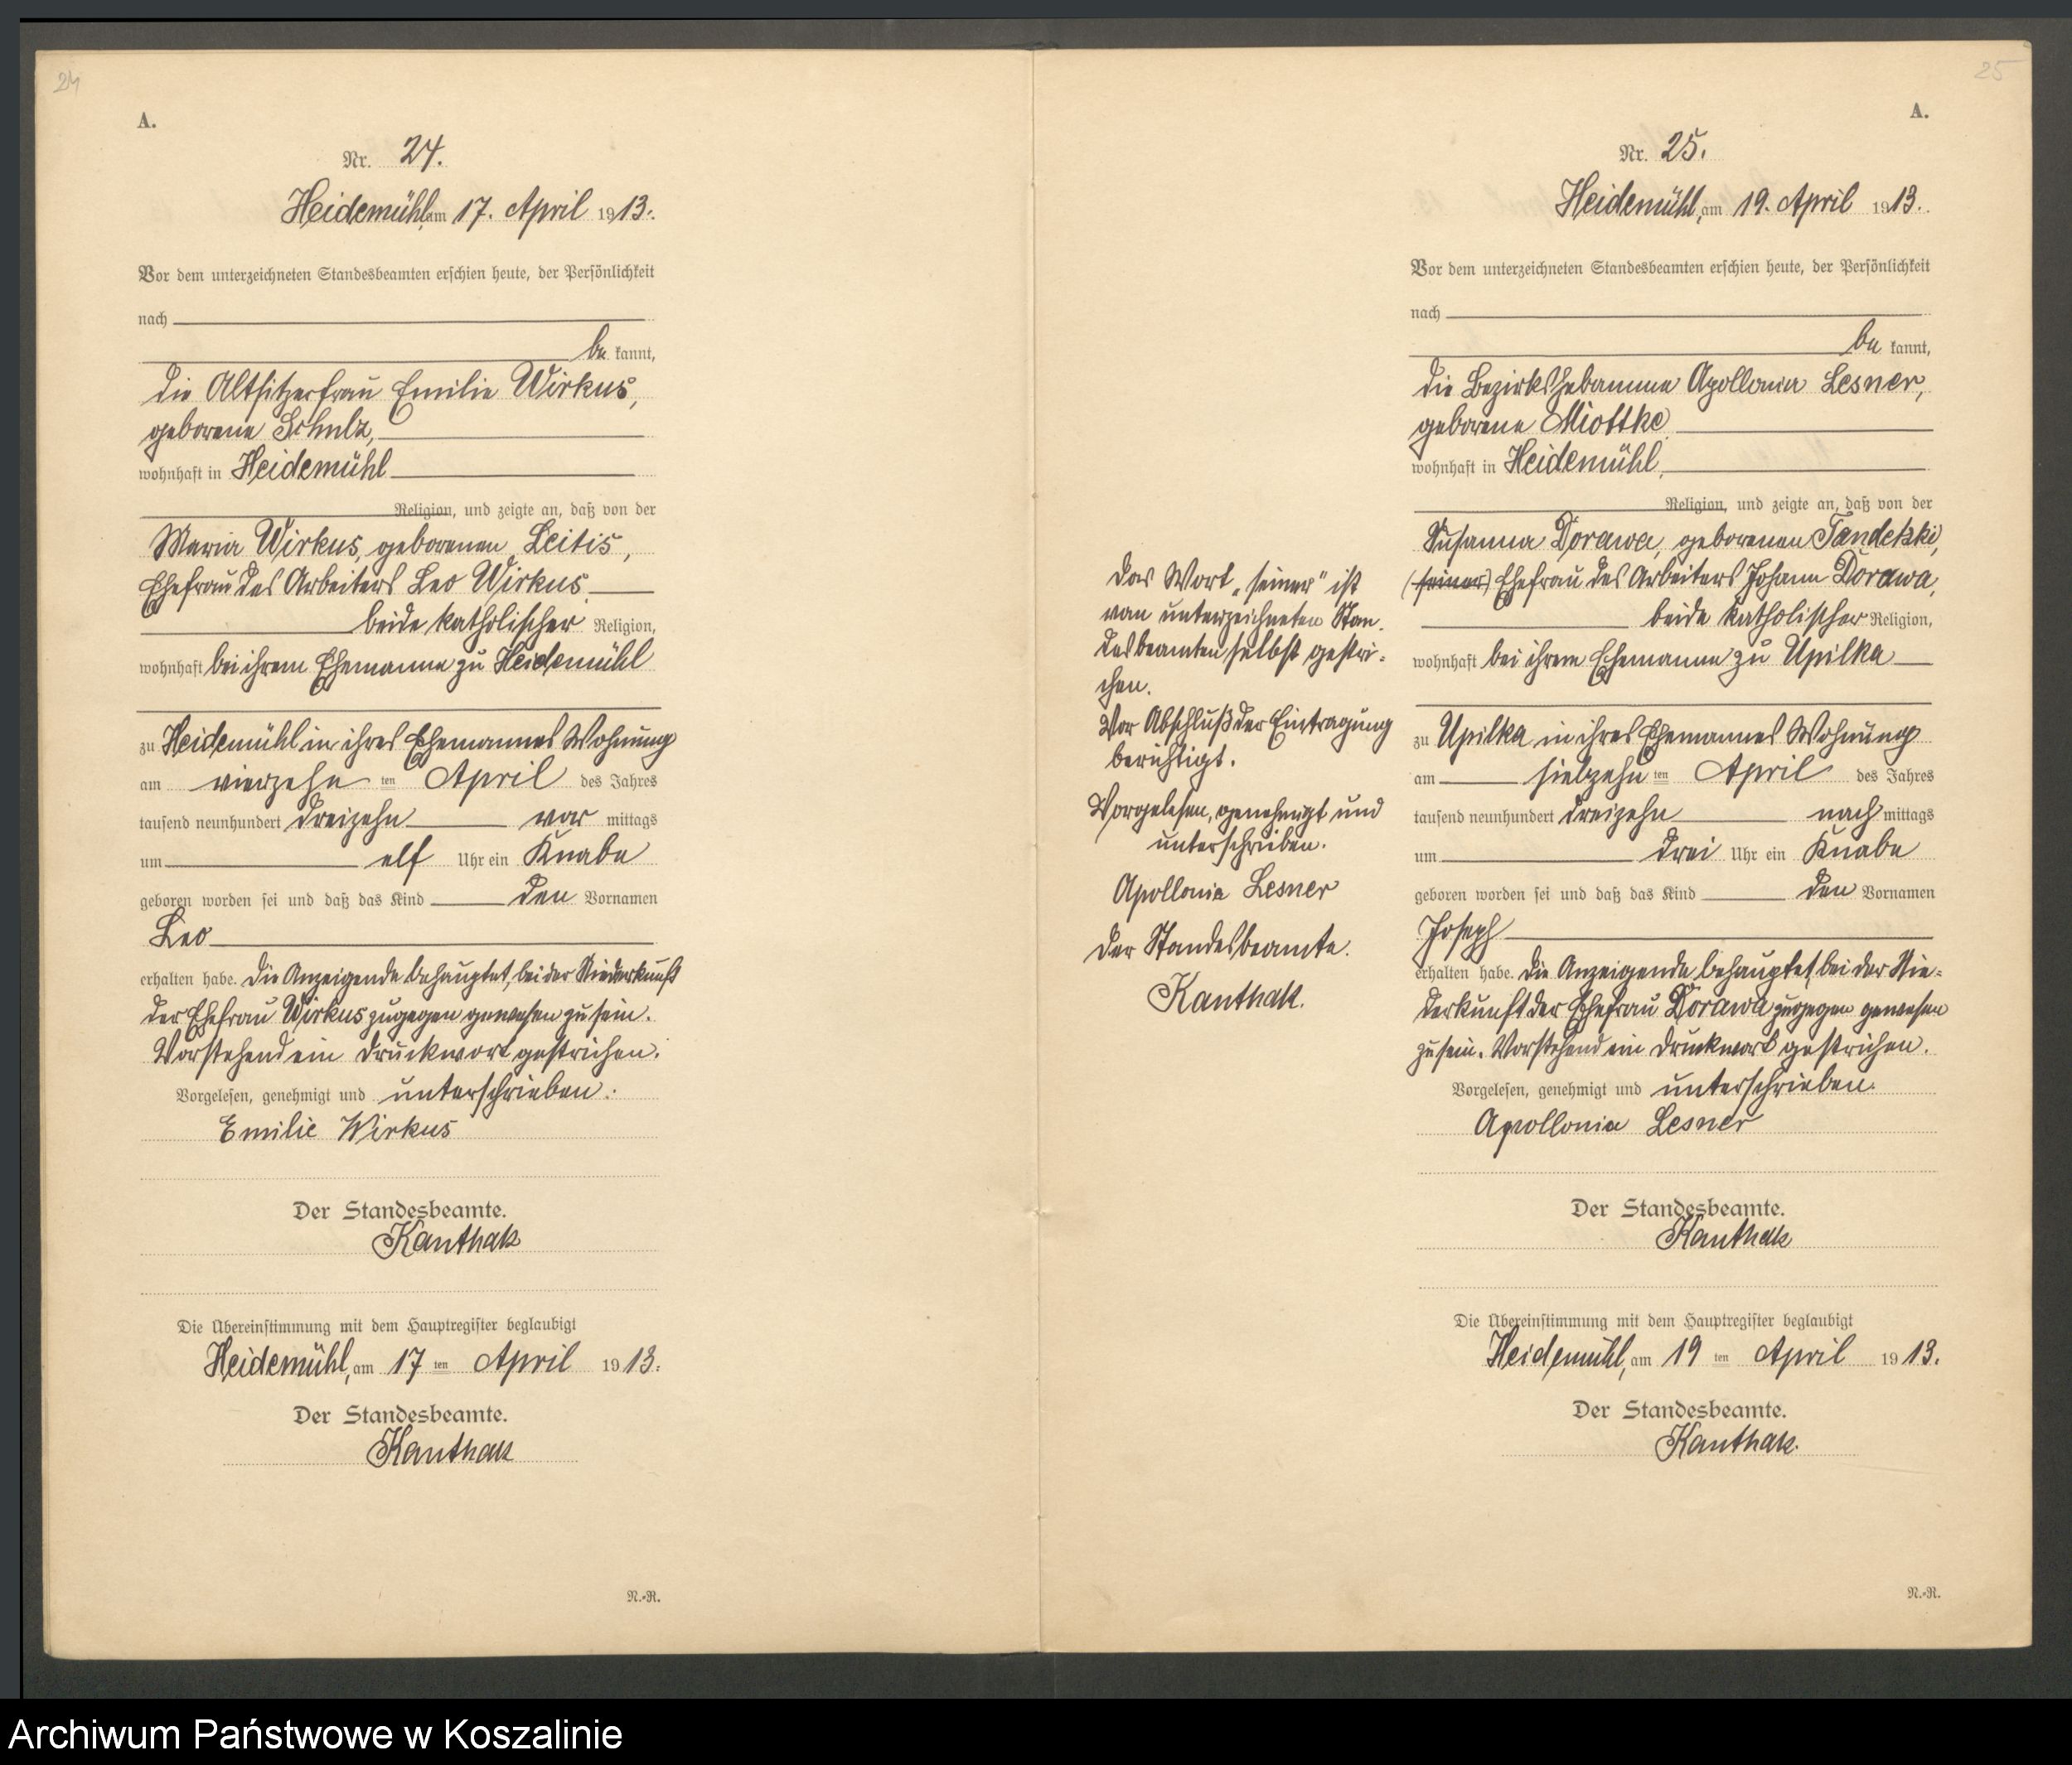 24
A.
Nr. 24.
Heidemühl, am 17. April 1913.
Vor dem unterzeichneten Standesbeamten erschien heute, der Persönlichkeit
nach
be kannt,
die Altsitzerfrau Emilie Wirkus,
geborene Schulz,
wohnhaft in Heidemühl
Religion, und zeigte an, daß von der
Maria Wirkus, geborenen Leitis,
Ehefrau des Arbeiters Leo Wirkus
beide katholischer Religion,
wohnhaft bei ihrem Ehemanne zu Heidemühl
zu Heidemühl in ihres Ehemannes Wohnung
am vierzehn ten April des Jahres
tausend neunhundert dreizehn vor mittags
um elf Uhr ein Knabe
geboren worden sei und daß das Kind den Vornamen
Leo
erhalten habe. Die Anzeigende behauptet, bei der Niederkunft
der Ehefrau Wirkus zugegen gewesen zu sein.
Vorstehend ein Druckwort gestrichen.
Vorgelesen, genehmigt und unterschrieben.
Emilie Wirkus
Der Standesbeamte.
Kanthak
Die Übereinstimmung mit dem Hauptregister beglaubigt
Heidemühl, am 17 ten April 1913.
Der Standesbeamte.
Kanthak
N.-R.
25
A.
Nr. 25.
Heidemühl, am 19. April 1913.
Vor dem unterzeichneten Standesbeamten erschien heute, der Persönlichkeit
nach
be kannt,
die Bezirkshebamme Apollonia Lesner,
geborene Miottke
wohnhaft in Heidemühl,
Religion, und zeigte an, daß von der
Susanna Dorawa, geborenen Tandetzki,
(seiner) Ehefrau des Arbeiters Johann Dorawa,
beide katholischer Religion,
wohnhaft bei ihrem Ehemanne zu Upilka
zu Upilka in ihres Ehemannes Wohnung
am siebzehn ten April des Jahres
tausend neunhundert dreizehn nach mittags
um drei Uhr ein Knabe
geboren worden sei und daß das Kind den Vornamen
Joseph
erhalten habe. Die Anzeigende behauptet, bei der Nie-
derkunft der Ehefrau Dorawa zugegen gewesen
zu sein. Vorstehend ein Druckwort gestrichen.
Vorgelesen, genehmigt und unterschrieben.
Apollonia Lesner
Der Standesbeamte.
Kanthak
Die Übereinstimmung mit dem Hauptregister beglaubigt
Heidemühl, am 19 ten April 1913.
Der Standesbeamte.
Kanthak.
N.-R.
Das Wort „seiner" ist
vom unterzeichneten Stan-
desbeamten selbst gestri-
chen.
Vor Abschluß der Eintragung
berichtigt.
Vorgelesen, genehmigt und
unterschrieben.
Apollonia Lesner
Der Standesbeamte.
Kanthak.
Archiwum Państwowe w Koszalinie